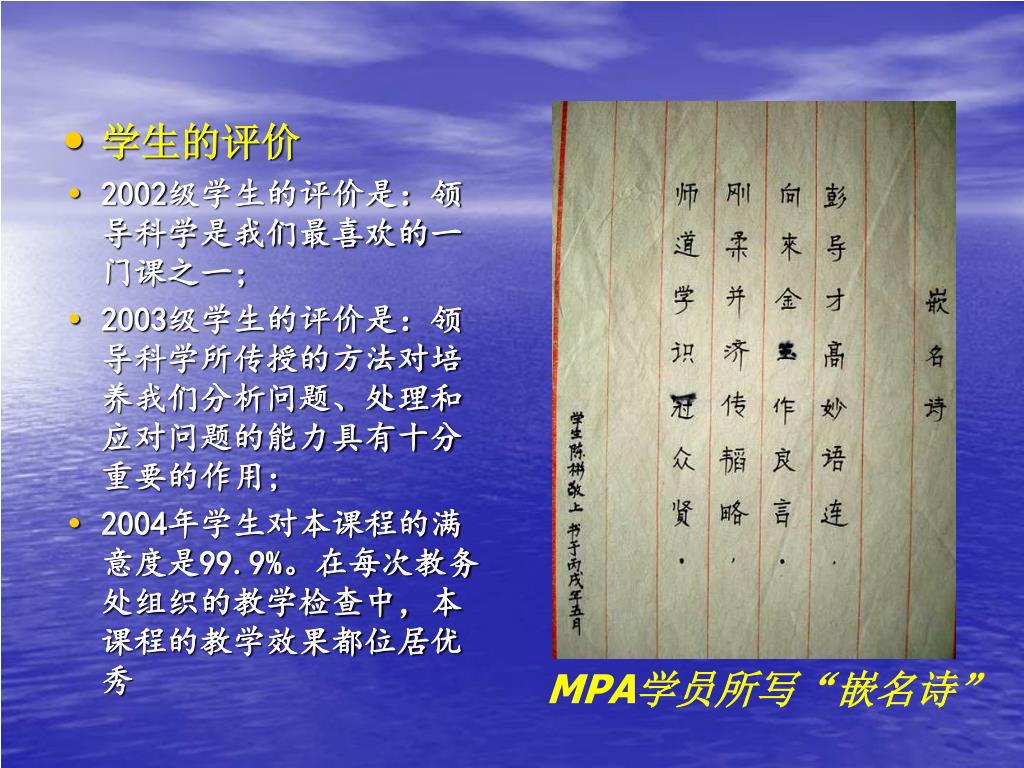 学生的评价
2002级学生的评价是：领
导科学是我们最喜欢的一
门课之一；
2003级学生的评价是：领
导科学所传授的方法对培
养我们分析问题、处理和
应对问题的能力具有十分
重要的作用；
2004年学生对本课程的满
意度是99.9%。在每次教务
处组织的教学检查中，本
课程的教学效果都位居优
秀
嵌名诗
彭导才高妙语连，
向來金玉作良言。
刚柔并济传韬略，
师道学识冠众贤。
学生陈彬敬上 书于丙戌年五月
MPA学员所写“嵌名诗”